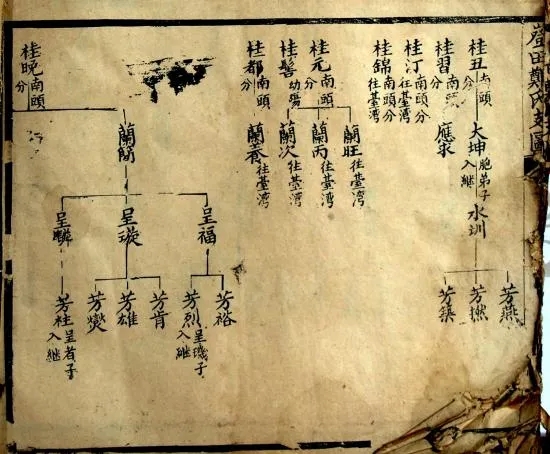 鄭氏支圖
桂丑 南頭分
大坤 胞弟子入継
水圳
芳燕
芳撚
芳築
桂習 南頭分
應求
桂汀 南頭分 往臺湾
桂錦 南頭分 往臺湾
桂元 南頭分
蘭旺 往臺湾
蘭丙 往臺湾
桂髻 幼殤
蘭次 往臺湾
桂都 南頭分
蘭養 往臺湾
桂晚 南頭分
蘭簡
呈福
呈璇
呈麟
芳裕
芳烈 呈璣子入継
芳肯
芳雄
芳燮
芳柱 呈者子入継